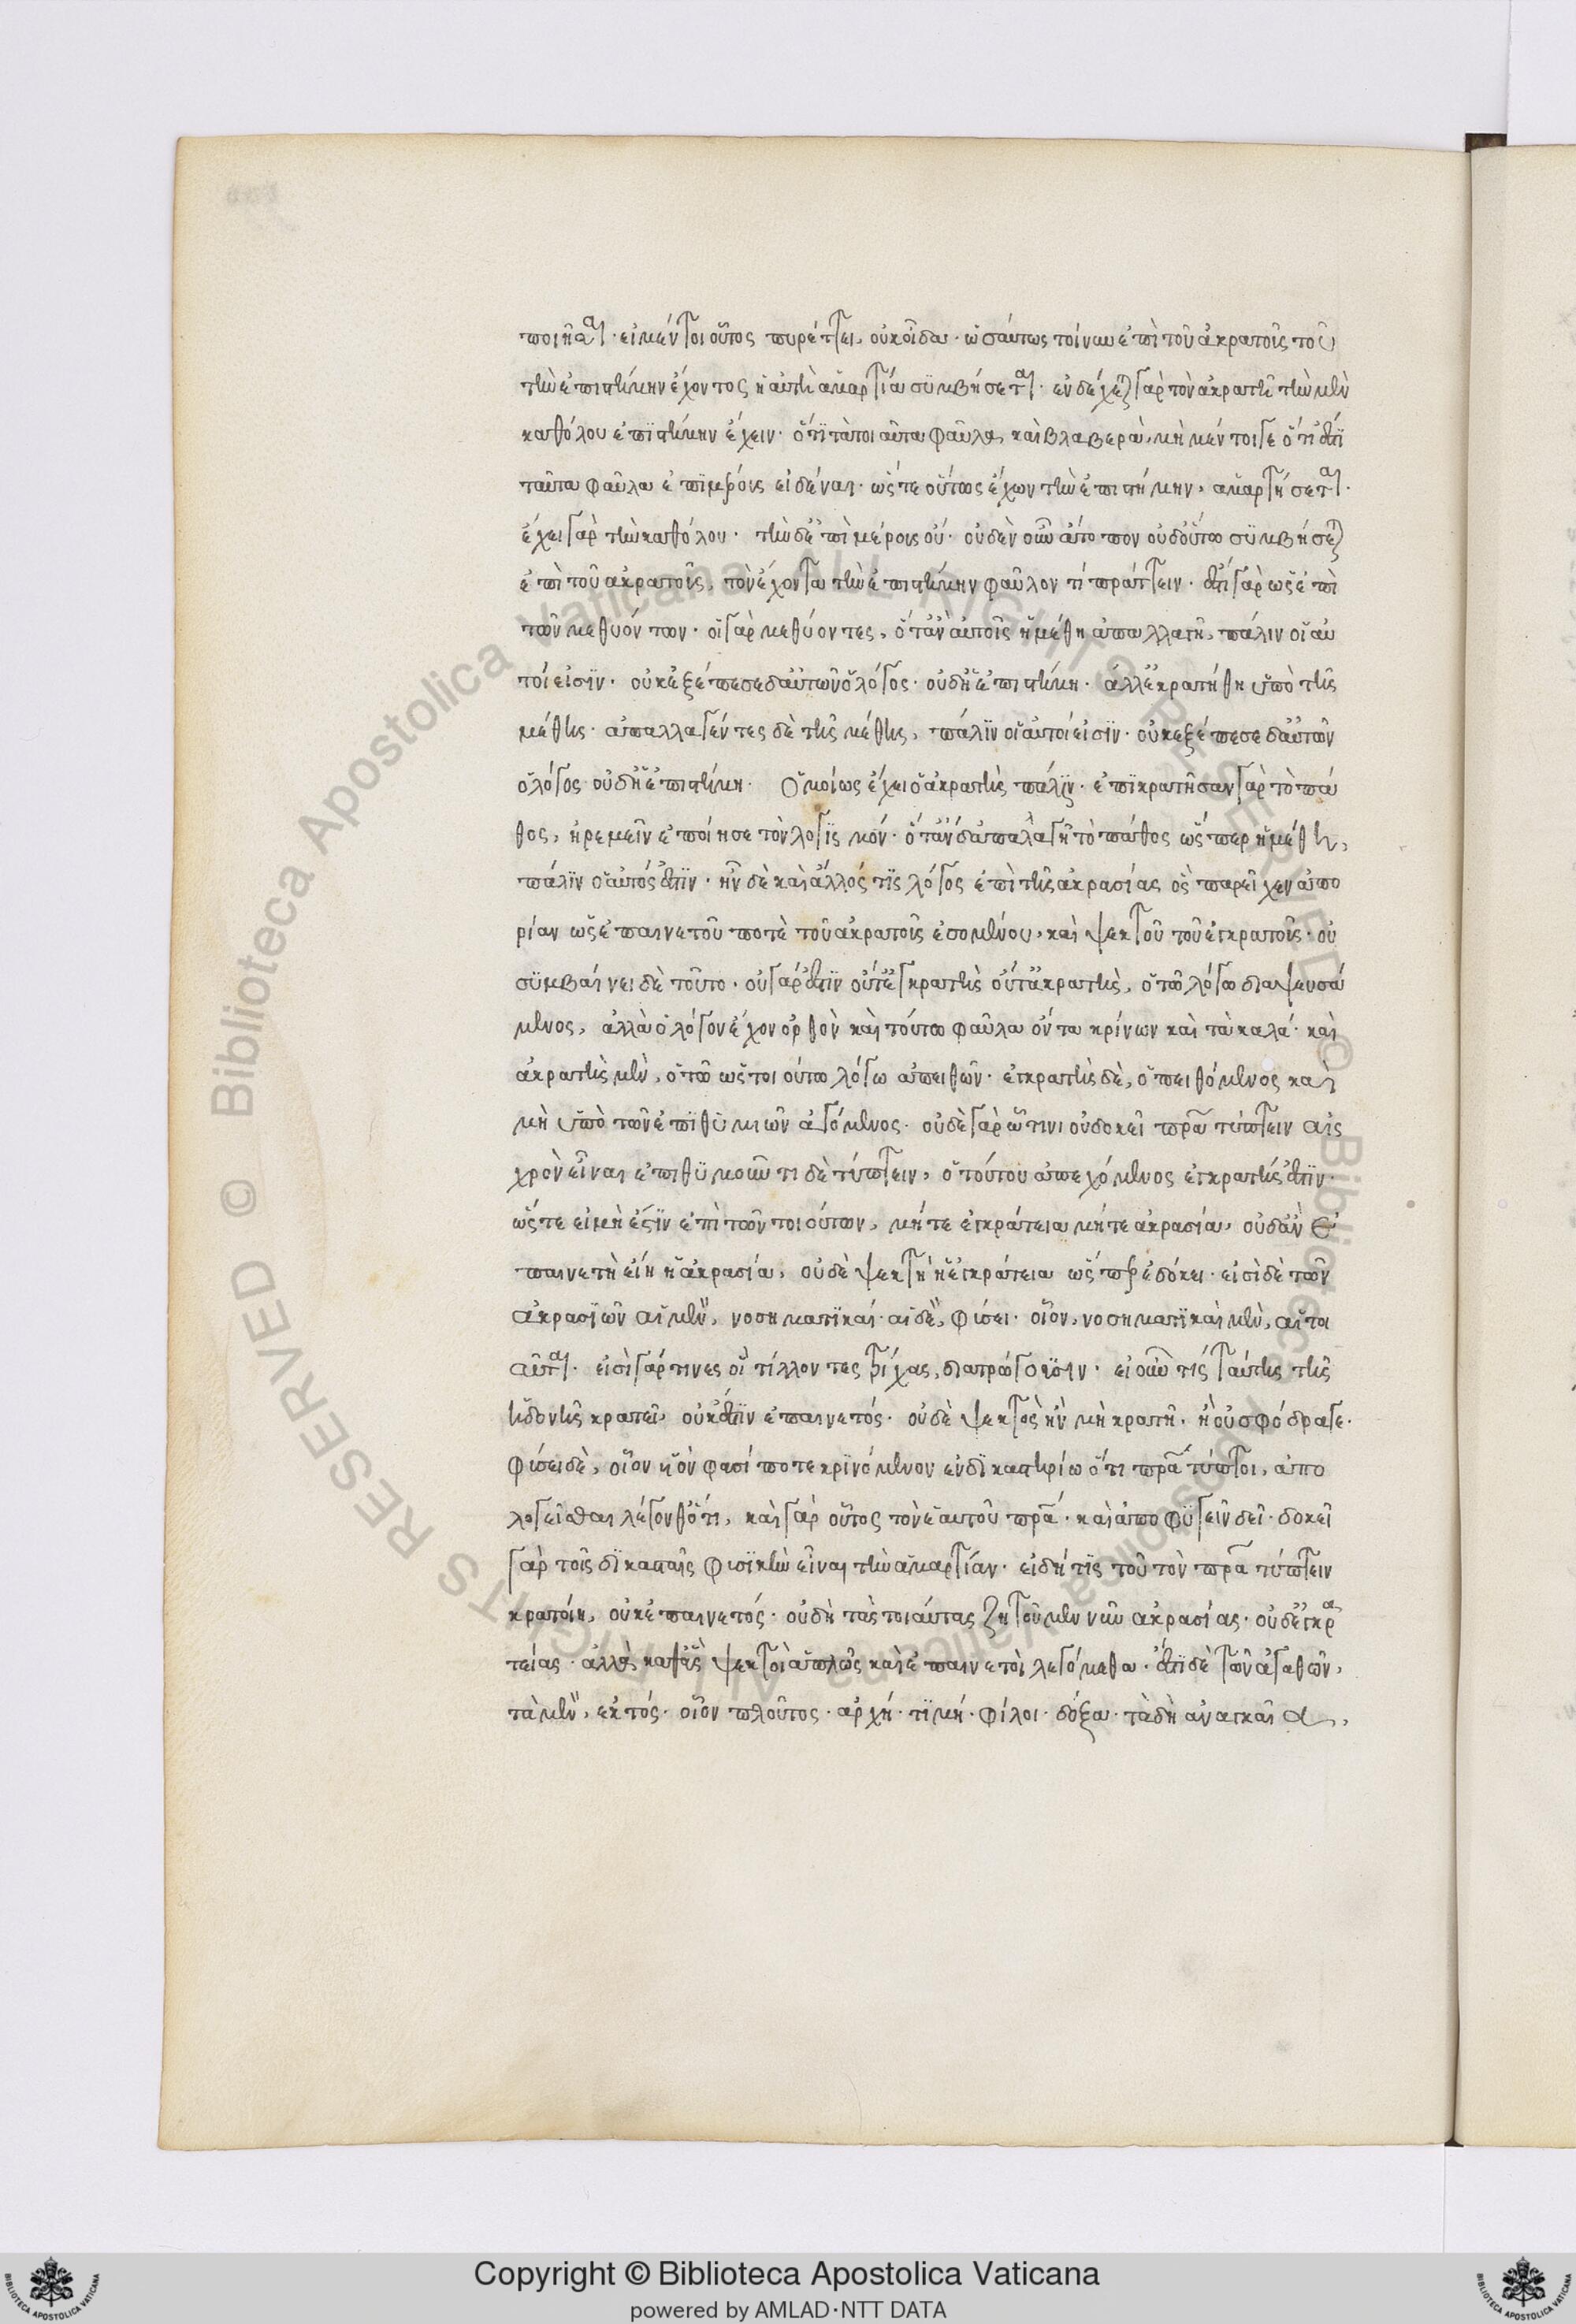 ποιῆσαι· εἰ μέντοι οὗτος πυρέττει, οὐκ οἶδα· ὡσαύτως τοίνυν ἐπὶ τοῦ ἀκρατοῦς τοῦ
τὴν ἐπιστήμην ἔχοντος ἡ αὐτὴ ἁμαρτία συμβήσεται· ἐνδέχεται γὰρ τὸν ἀκρατῆ τὴν μὲν
καθόλου ἐπιστήμην ἔχειν· ὅτι τὰ τοιαῦτα φαῦλα, καὶ βλαβερὰ, μὴ μέντοι γε ὅτι ἐστὶ
ταῦτα φαῦλα ἐπιμέρους εἰδέναι· ὥστε οὕτως ἔχων τὴν ἐπιστήμην, ἁμαρτήσεται·
ἔχει γὰρ τὴν καθόλου· τὴν δ' ἐπὶ μέρους οὔ· οὐδὲν οὖν ἄτοπον οὐδ' οὕτω συμβήσεται
ἐπὶ τοῦ ἀκρατοῦς, τὸν ἔχοντα τὴν ἐπιστήμην φαῦλόν τι πράττειν· ἔστι γὰρ ὡς ἐπὶ
τῶν μεθυόντων· οἱ γὰρ μεθύοντες, ὅταν αὐτοῖς ἡ μέθη ἀπαλλαγῆ, πάλιν οἱ αὐ
τοί εἰσιν· οὐκ ἐξέπεσε δ' αὐτῶν ὁ λόγος· οὐδ' ἡ ἐπιστήμη· ἀλλ' ἐκρατήθη ὑπὸ τῆς
μέθης· ἀπαλλαγέντες δὲ τῆς μέθης, πάλιν οἱ αὐτοί εἰσιν· οὐκ ἐξέπεσε δ' αὐτῶν
ὁ λόγος οὐδ' ἡ ἐπιστήμη· Ὁμοίως ἔχει ὁ ἀκρατὴς πάλιν· ἐπικρατῆσαν γὰρ τὸ πά
θος, ἠρεμεῖν ἐποίησε τὸν λογισμόν· ὅταν δ' ἀπαλλαγῆ τὸ πάθος ὥσπερ ἡ μέθη,
πάλιν ὁ αὐτός ἐστιν· ἦν δὲ καὶ ἄλλος τις λόγος ἐπὶ τῆς ἀκρασίας ὃς παρεῖχεν ἀπο
ρίαν ὡς ἐπαινετοῦ ποτὲ τοῦ ἀκρατοῦς ἐσομένου, καὶ ψεκτοῦ τοῦ ἐγκρατοῦς· οὐ
συμβαίνει δὲ τοῦτο· οὐ γάρ ἐστιν οὔτ' ἐγκρατὴς οὔτ' ἀκρατὴς, ὁ τῶ λόγω διαψευσά
μενος, ἀλλὰ ὁ λόγον ἔχων ὀρθὸν καὶ τούτω φαῦλα ὄντα κρίνων καὶ τὰ καλά· καὶ
ἀκρατὴς μὲν, ὁ τῶ ὡς τοιούτω λόγω ἀπειθῶν· ἐγκρατὴς δὲ, ὁ πειθόμενος καὶ
μὴ ὑπὸ τῶν ἐπιθυμιῶν ἀγόμενος· οὐδὲ γὰρ ὧτινι οὐ δοκεῖ πρα τύπτειν αἰσ
χρὸν εἶναι ἐπιθυμοῦντι δὲ τύπτειν, ὁ τούτου ἀπεχόμενος ἐγκρατής ἐστιν·
ὥστε εἰ μὴ ἐστὶν ἐπὶ τῶν τοιούτων, μήτε ἐγκράτεια μήτε ἀκρασία, οὐδ' ἂν ἐ
παινετὴ εἴη ἡ ἀκρασία, οὐδὲ ψεκτὴ ἡ ἐγκράτεια ὥσπερ ἐδόκει· εἰσὶ δὲ τῶν
ἀκρασιῶν αἱ μὲν, νοσηματικαί· αἱ δὲ, φύσει· οἷον, νοσηματικαὶ μὲν, αἱ τοι
αῦται· εἰσὶ γάρ τινες οἳ τίλλοντες τρίχας, διατρώγουσιν· εἰ οὖν τις ταύτης τῆς
ἡδονῆς κρατεῖ, οὐκ ἔστιν ἐπαινετός· οὐδὲ ψεκτὸς ἢν μὴ κρατῆ, ἢ οὐ σφόδρα γε·
φύσει δὲ, οἷον ὑὸν φασί ποτε κρινόμενον ἐν δικαστηρίω ὅτι πρα τύπτοι, ἀπο
λογεῖσθαι λέγονθ' ὅτι, καὶ γὰρ οὗτος τὸν ἑαυτοῦ πρα· καὶ ἀποφυγεῖν δεῖ· δοκεῖ
γὰρ τοῖς δικασταῖς φυσικὴν εἶναι τὴν ἁμαρτίαν· εἰ δή τις τοῦ τὸν πρα τύπτειν
κρατοίη, οὐκ ἐπαινετός· οὐ δὴ τὰς τοιαύτας ζητοῦμεν νῦν ἀκρασίας· οὐδ' ἐγκρα
τείας· ἀλλὰ καθ' ἃς ψεκτοὶ ἁπλῶς καὶ ἐπαινετοὶ λεγόμεθα· ἔστι δὲ τῶν ἀγαθῶν,
τὰ μὲν, ἐκτός· οἷον πλοῦτος· ἀρχή· τιμή· φίλοι· δόξα· τὰ δὴ ἀναγκαῖα,
Copyright © Biblioteca Apostolica Vaticana
powered by AMLAD·NTT DATA